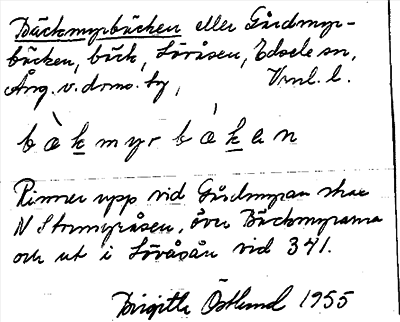 Bäckmyrbäcken eller Gårdmyr-
bäcken, bäck, Lövåsen, Edsele sn,
Ång. v. doms. hy, Vnl. l.
b à k m y r b à k e n
Rinner upp vid Gårdmyran
N Stormyråsen, över Bäckmyrarna
och ut i Lövåsån vid 341.
Birgitta Östlund 1955